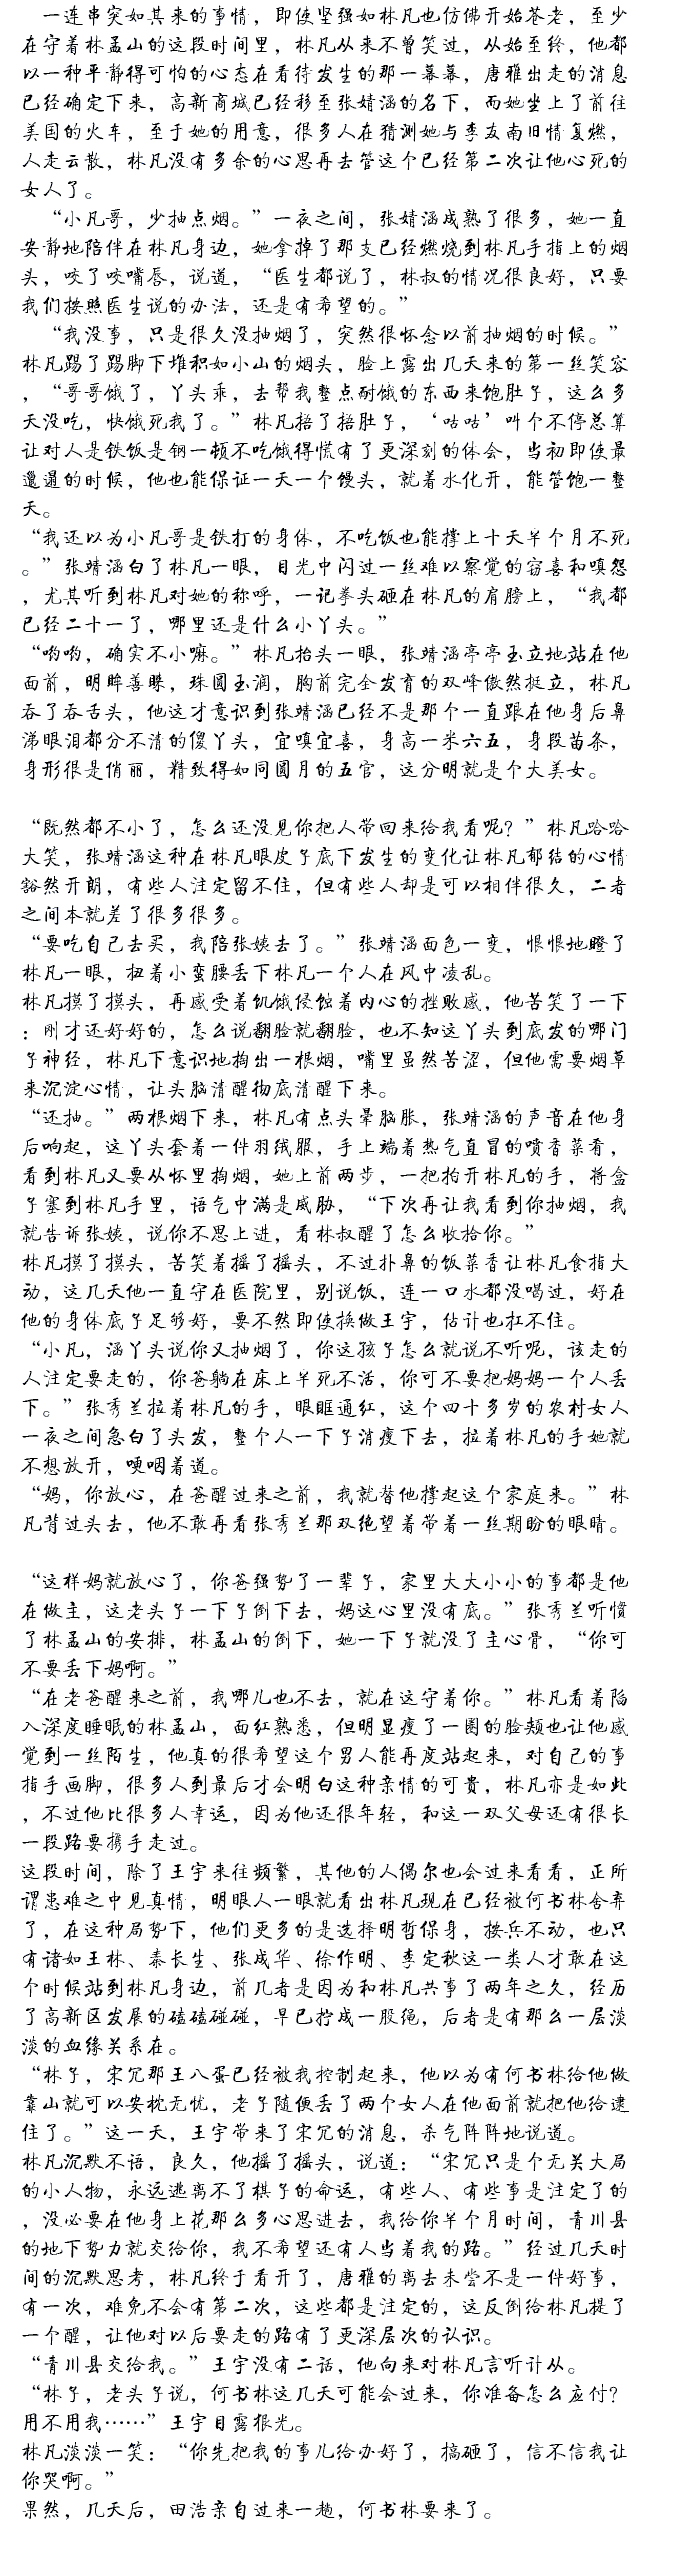 一连串突如其来的事情，即使坚强如林凡也仿佛开始苍老，至少
在守着林孟山的这段时间里，林凡从来不曾笑过，从始至终，他都
以一种平静得可怕的心态在看待发生的那一幕幕，唐雅出走的消息
已经确定下来，高新商城已经移至张婧涵的名下，而她坐上了前往
美国的火车，至于她的用意，很多人在猜测她与李友南旧情复燃，
人走云散，林凡没有多余的心思再去管这个已经第二次让他心死的
女人了。
“小凡哥，少抽点烟。”一夜之间，张婧涵成熟了很多，她一直
安静地陪伴在林凡身边，她拿掉了那支已经燃烧到林凡手指上的烟
头，咬了咬嘴唇，说道，“医生都说了，林叔的情况很良好，只要
我们按照医生说的办法，还是有希望的。”
“我没事，只是很久没抽烟了，突然很怀念以前抽烟的时候。”
林凡踢了踢脚下堆积如小山的烟头，脸上露出几天来的第一丝笑容
，“哥哥饿了，丫头乖，去帮我整点耐饿的东西来饱肚子，这么多
天没吃，快饿死我了。”林凡捂了捂肚子，‘咕咕’叫个不停总算
让对人是铁饭是钢一顿不吃饿得慌有了更深刻的体会，当初即使最
邋遢的时候，他也能保证一天一个馒头，就着水化开，能管饱一整
天。
“我还以为小凡哥是铁打的身体，不吃饭也能撑上十天半个月不死
。”张靖涵白了林凡一眼，目光中闪过一丝难以察觉的窃喜和嗔怨
，尤其听到林凡对她的称呼，一记拳头砸在林凡的肩膀上，“我都
已经二十一了，哪里还是什么小丫头。”
“哟哟，确实不小嘛。”林凡抬头一眼，张靖涵亭亭玉立地站在他
面前，明眸善睐，珠圆玉润，胸前完全发育的双峰傲然挺立，林凡
吞了吞舌头，他这才意识到张靖涵已经不是那个一直跟在他身后鼻
涕眼泪都分不清的傻丫头，宜嗔宜喜，身高一米六五，身段苗条，
身形很是俏丽，精致得如同圆月的五官，这分明就是个大美女。
“既然都不小了，怎么还没见你把人带回来给我看呢？”林凡哈哈
大笑，张靖涵这种在林凡眼皮子底下发生的变化让林凡郁结的心情
豁然开朗，有些人注定留不住，但有些人却是可以相伴很久，二者
之间本就差了很多很多。
“要吃自己去买，我陪张姨去了。”张靖涵面色一变，恨恨地瞪了
林凡一眼，扭着小蛮腰丢下林凡一个人在风中凌乱。
林凡摸了摸头，再感受着饥饿侵蚀着内心的挫败感，他苦笑了一下
：刚才还好好的，怎么说翻脸就翻脸，也不知这丫头到底发的哪门
子神经，林凡下意识地掏出一根烟，嘴里虽然苦涩，但他需要烟草
来沉淀心情，让头脑清醒彻底清醒下来。
“还抽。”两根烟下来，林凡有点头晕脑胀，张靖涵的声音在他身
后响起，这丫头套着一件羽绒服，手上端着热气直冒的喷香菜肴，
看到林凡又要从怀里掏烟，她上前两步，一把拍开林凡的手，将盒
子塞到林凡手里，语气中满是威胁，“下次再让我看到你抽烟，我
就告诉张姨，说你不思上进，看林叔醒了怎么收拾你。”
林凡摸了摸头，苦笑着摇了摇头，不过扑鼻的饭菜香让林凡食指大
动，这几天他一直守在医院里，别说饭，连一口水都没喝过，好在
他的身体底子足够好，要不然即使换做王宇，估计也扛不住。
“小凡，涵丫头说你又抽烟了，你这孩子怎么就说不听呢，该走的
人注定要走的，你爸躺在床上半死不活，你可不要把妈妈一个人丢
下。”张秀兰拉着林凡的手，眼眶通红，这个四十多岁的农村女人
一夜之间急白了头发，整个人一下子消瘦下去，拉着林凡的手她就
不想放开，哽咽着道。
“妈，你放心，在爸醒过来之前，我就替他撑起这个家庭来。”林
凡背过头去，他不敢再看张秀兰那双绝望着带着一丝期盼的眼睛。
“这样妈就放心了，你爸强势了一辈子，家里大大小小的事都是他
在做主，这老头子一下子倒下去，妈这心里没有底。”张秀兰听惯
了林孟山的安排，林孟山的倒下，她一下子就没了主心骨，“你可
不要丢下妈啊。”
“在老爸醒来之前，我哪儿也不去，就在这守着你。”林凡看着陷
入深度睡眠的林孟山，面红熟悉，但明显瘦了一圈的脸颊也让他感
觉到一丝陌生，他真的很希望这个男人能再度站起来，对自己的事
指手画脚，很多人到最后才会明白这种亲情的可贵，林凡亦是如此
，不过他比很多人幸运，因为他还很年轻，和这一双父母还有很长
一段路要携手走过。
这段时间，除了王宇来往频繁，其他的人偶尔也会过来看看，正所
谓患难之中见真情，明眼人一眼就看出林凡现在已经被何书林舍弃
了，在这种局势下，他们更多的是选择明哲保身，按兵不动，也只
有诸如王林、秦长生、张成华、徐作明、李定秋这一类人才敢在这
个时候站到林凡身边，前几者是因为和林凡共事了两年之久，经历
了高新区发展的磕磕碰碰，早已拧成一股绳，后者是有那么一层淡
淡的血缘关系在。
“林子，宋冗那王八蛋已经被我控制起来，他以为有何书林给他做
靠山就可以安枕无忧，老子随便丢了两个女人在他面前就把他给逮
住了。”这一天，王宇带来了宋冗的消息，杀气阵阵地说道。
林凡沉默不语，良久，他摇了摇头，说道：“宋冗只是个无关大局
的小人物，永远逃离不了棋子的命运，有些人、有些事是注定了的
，没必要在他身上花那么多心思进去，我给你半个月时间，青川县
的地下势力就交给你，我不希望还有人当着我的路。”经过几天时
间的沉默思考，林凡终于看开了，唐雅的离去未尝不是一件好事，
有一次，难免不会有第二次，这些都是注定的，这反倒给林凡提了
一个醒，让他对以后要走的路有了更深层次的认识。
“青川县交给我。”王宇没有二话，他向来对林凡言听计从。
“林子，老头子说，何书林这几天可能会过来，你准备怎么应付？
用不用我……”王宇目露狠光。
林凡淡淡一笑：“你先把我的事儿给办好了，搞砸了，信不信我让
你哭啊。”
果然，几天后，田浩亲自过来一趟，何书林要来了。